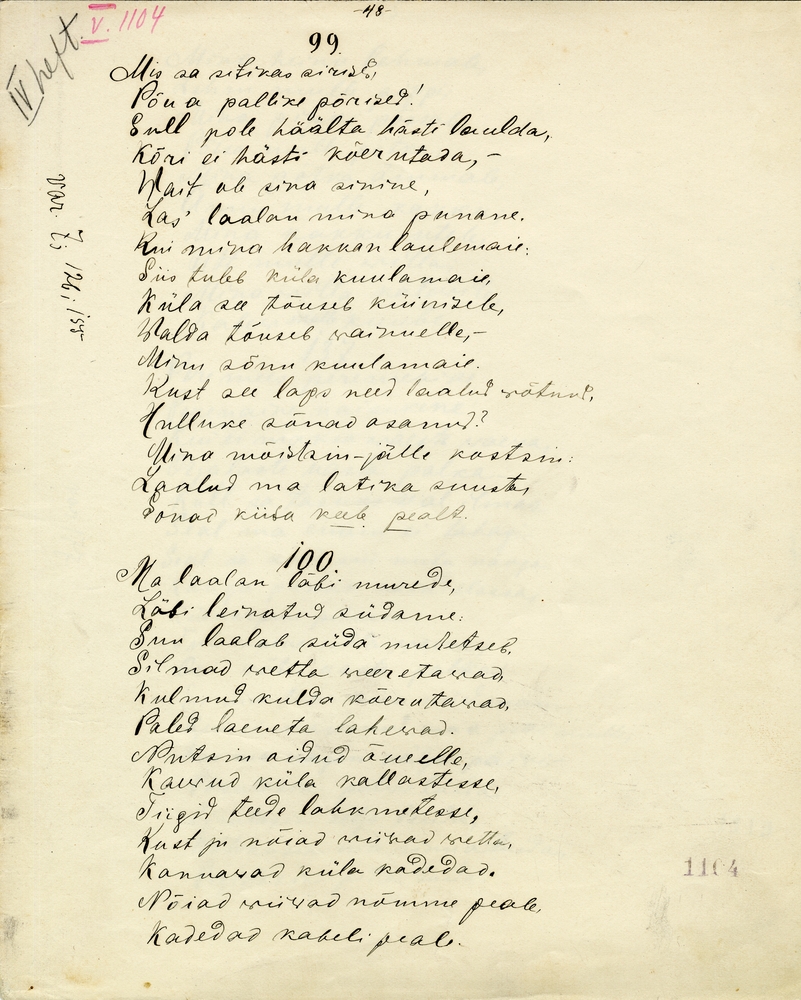 -48-
V. 1104
IV heft.
var. 7; 126; 155
99.
Mis sa sitikas sirised,
Põua pallike põrised!
Sull pole häälta hästi laulda,
Kõri ei hästi kõerutada,-
Wait ole sina sinine,
Las' laalan mina punane.
Kui mina hakkan laulemaie:
Siis tuleb küla kuulamaie,
Küla see tõuseb küinisele,
Walda tõuseb wainuelle,-
Minu sõnu kuulamaie.
Kust see laps need laalud wõtnud,
Hulluke sõnad osanud?
Mina mõistsin-jälle kostsin:
Laalud ma latika suusta,
Sõnad kiisa keele pealt.
100
Ma laalan läbi murede,
Läbi leinatud südame:
Suu laalab süda mutetseb,
Silmad wetta weeretawad,
Kulmud kulda kõerutawad,
Paled laeneta lahewad.
Nutsin oidud õuelle,
Kaewud küla kallastesse,
Tiigid teede lahkmetesse,
Kust ju nõiad wiiwad wetta,
Kannawad küla kadedad.
Nõiad wiiwad nõmme peale,
Kadedad kabeli peale.
1104